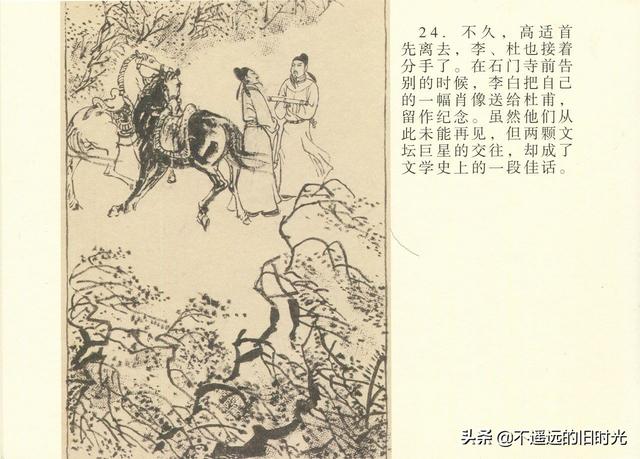 24．不久，高适首
先离去，李、杜也接着
分手了。在石门寺前告
别的时候，李白把自己
的一幅肖像送给杜甫，
留作纪念。虽然他们从
此未能再见，但两颗文
坛巨星的交往，却成了
文学史上的一段佳话。
头条 @不遥远的旧时光